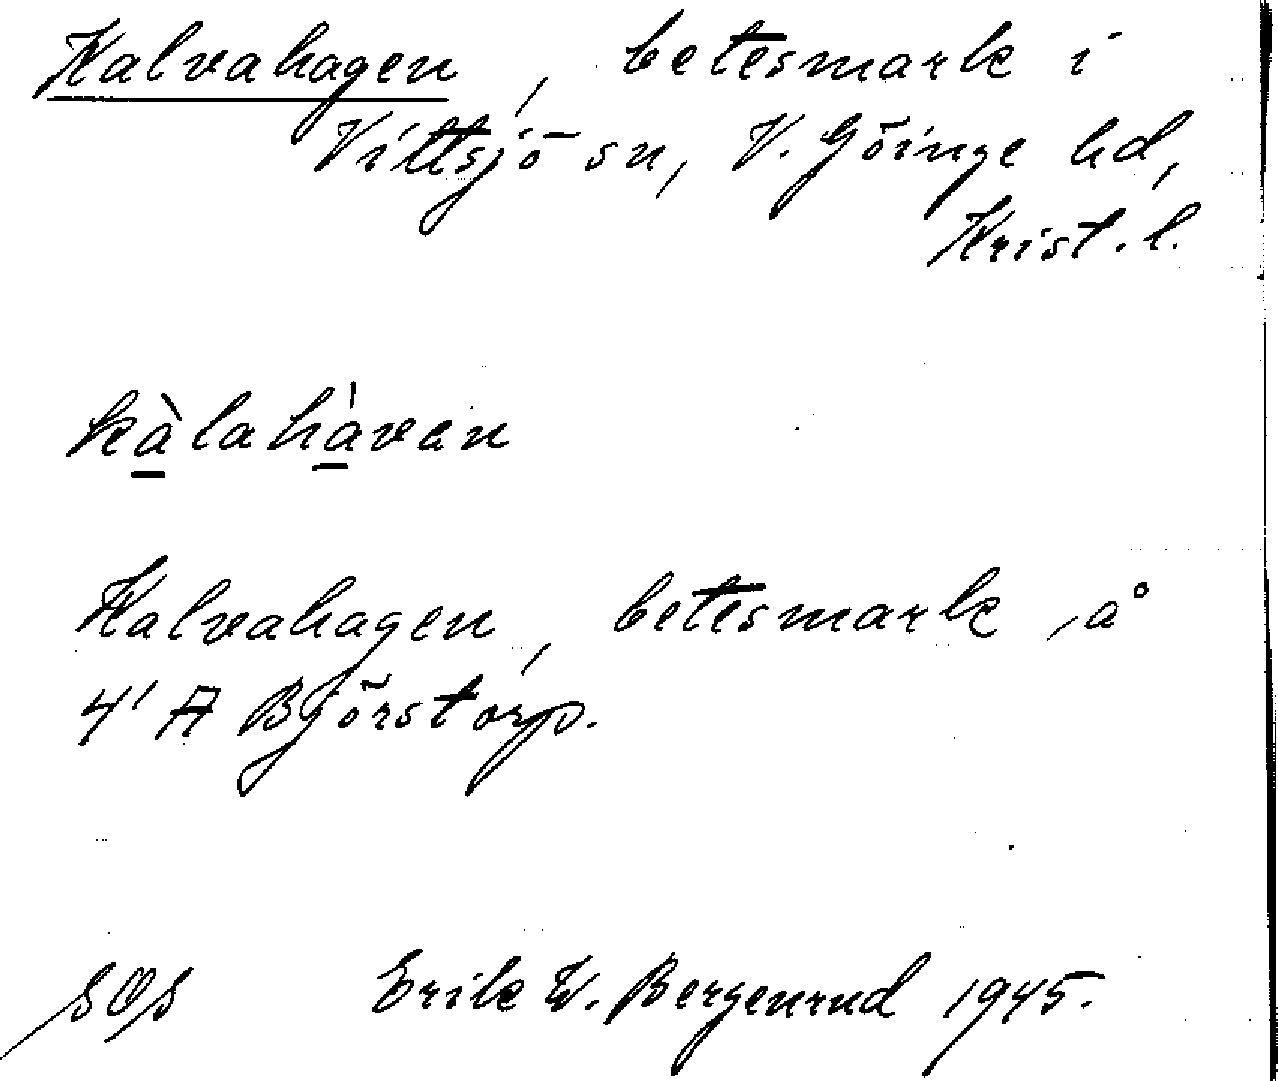 Kalvahagen, betesmark i
Vittsjö sn, V. Göinge hd,
Krist. l.
kàlahàvan
Kalvahagen, betesmark, å
4' A Björstorp.
SOS Erik W. Bergenrud 1945.